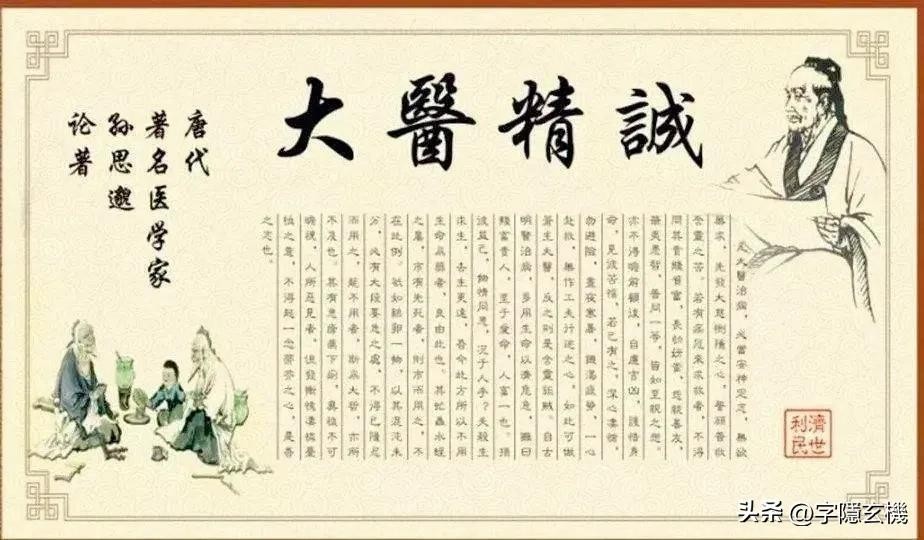 大醫精誠
唐代
著名医学家
孙思邈
论著
凡大醫治病，必當安神定志，無欲
無求，先發大慈惻隱之心，誓願普救
含靈之苦。若有疾厄來求救者，不得
問其貴賤貧富，長幼妍蚩，怨親善友，
華夷愚智，普同一等，皆如至親之想。
亦不得瞻前顧後，自慮吉凶，護惜身
命。見彼苦惱，若己有之，深心悽愴，
勿避險，晝夜寒暑，飢渴疲勞，一心
赴救，無作工夫行迹之心。如此可做
蒼生大醫，反之則是含靈鉅賊。自古
明賢治病，多用生命以濟危急，雖曰
賤畜貴人，至于愛命，人畜一也。損
彼益己，物情同患，況于人乎？夫殺生
求生，去生更遠。吾今此方所以不用
生命為藥者，良由此也。其虻蟲水蛭
之屬，市有先死者，則市而用之，不
在此例。祇如雞卵一物，以其混沌未
分，必有大段要急之處，不得已隱忍
而用之。能不用者，斯為大哲，亦所
不及也。其有患瘡痍下痢，臭穢不可
瞻視，人所惡見者，但發慚愧凄憐憂
恤之意，不得起一念蒂芥之心，是吾
之志也。
濟世
利民
头条 @字隱玄機